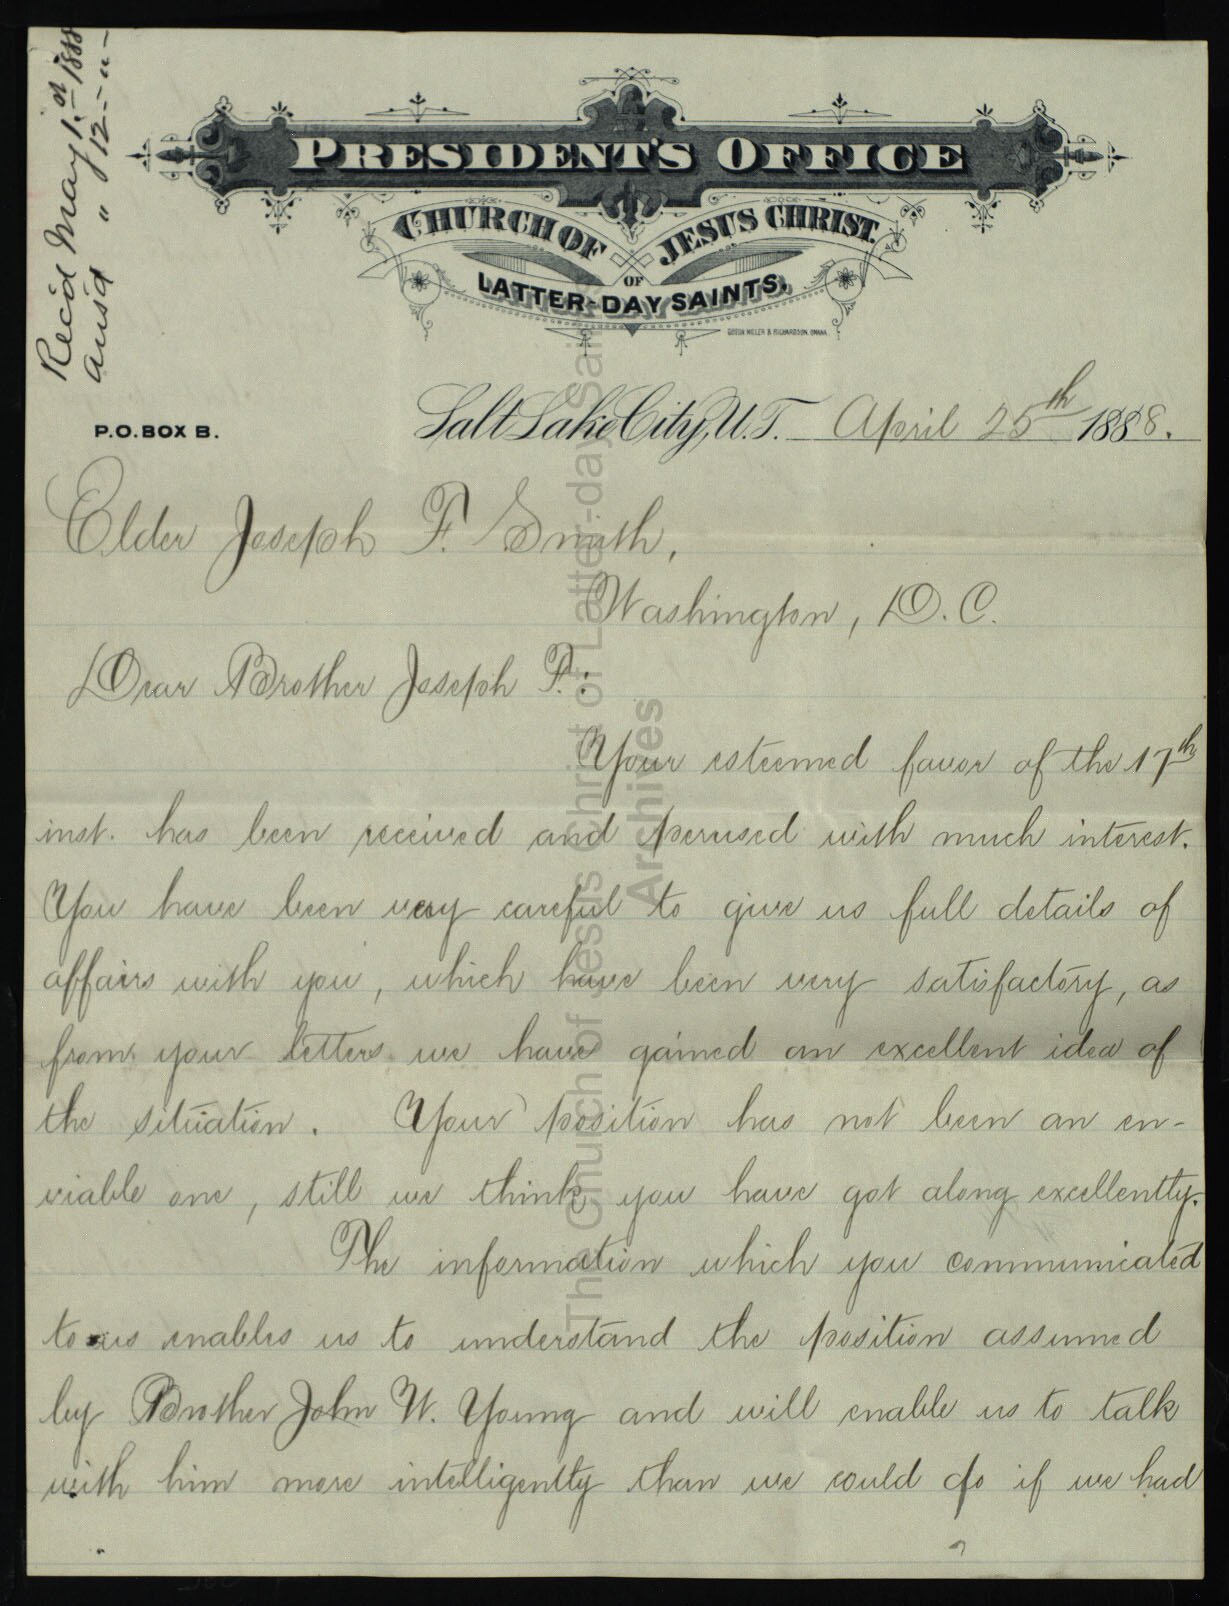 Rec'd May 1.st 1888
ans'd " 12 - " -
PRESIDENT'S OFFICE
CHURCH OF JESUS CHRIST
OF
LATTER-DAY SAINTS.
P.O. BOX B.
Salt Lake City, U.T. April 25th 1888.
Elder Joseph F. Smith,
Washington, D.C.
Dear Brother Joseph F.:
Your esteemed favor of the 17th
inst. has been received and perused with much interest.
You have been very careful to give us full details of
affairs with you, which have been very satisfactory, as
from your letters we have gained an excellent idea of
the situation. Your position has not been an en-
viable one, still we think you have got along excellently.
The information which you communicated
to us enables us to understand the position assumed
by Brother John W. Young and will enable us to talk
with him more intelligently than we could do if we had
The Church of Jesus Christ of Latter-day Saints
Archives